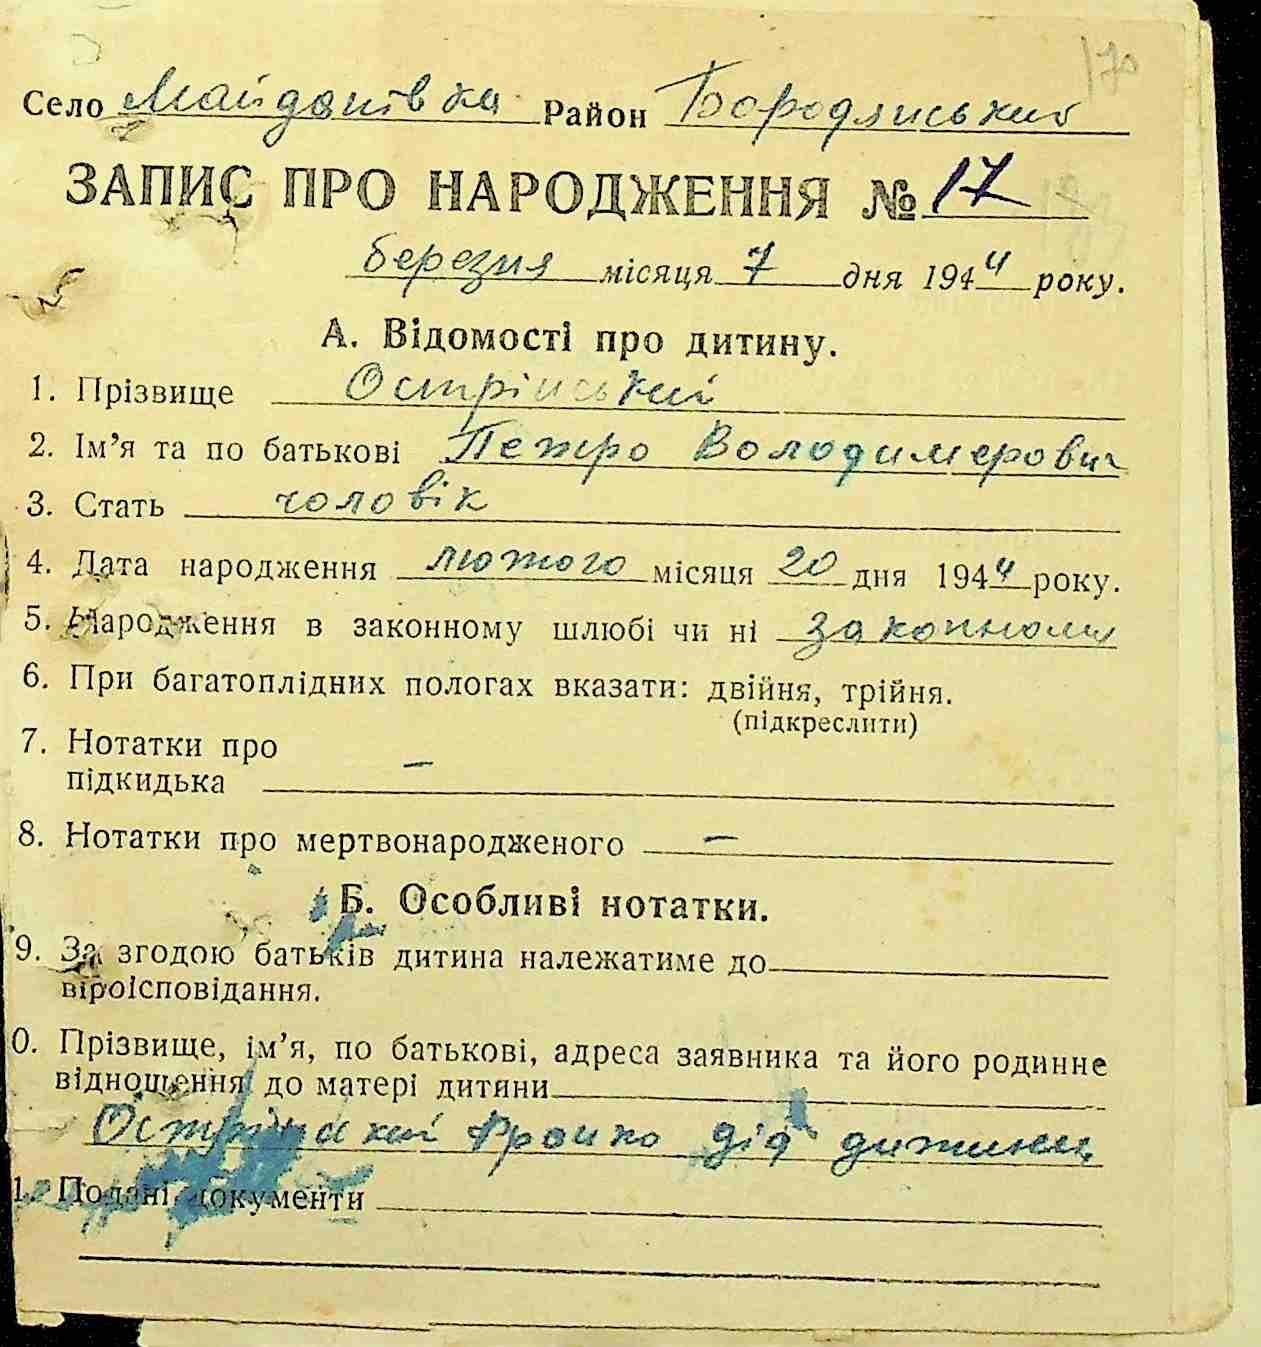 170
Село Майданівка Район Бородянський
ЗАПИС ПРО НАРОДЖЕННЯ № 17
березня місяця 7 дня 1944 року.
А. Відомості про дитину.
1. Прізвище Острінський
2. Ім’я та по батькові Петро Володимерович
3. Стать чоловік
4. Дата народження лютого місяця 20 дня 1944 року.
5. Народження в законному шлюбі чи ні законному
6. При багатоплідних пологах вказати: двійня, трійня.
(підкреслити)
7. Нотатки про
підкидька –
8. Нотатки про мертвонародженого –
Б. Особливі нотатки.
9. За згодою батьків дитина належатиме до
віроісповідання.
0. Прізвище, ім’я, по батькові, адреса заявника та його родинне
відношення до матері дитини
Острінський Франко дід дитини
1. Подані документи